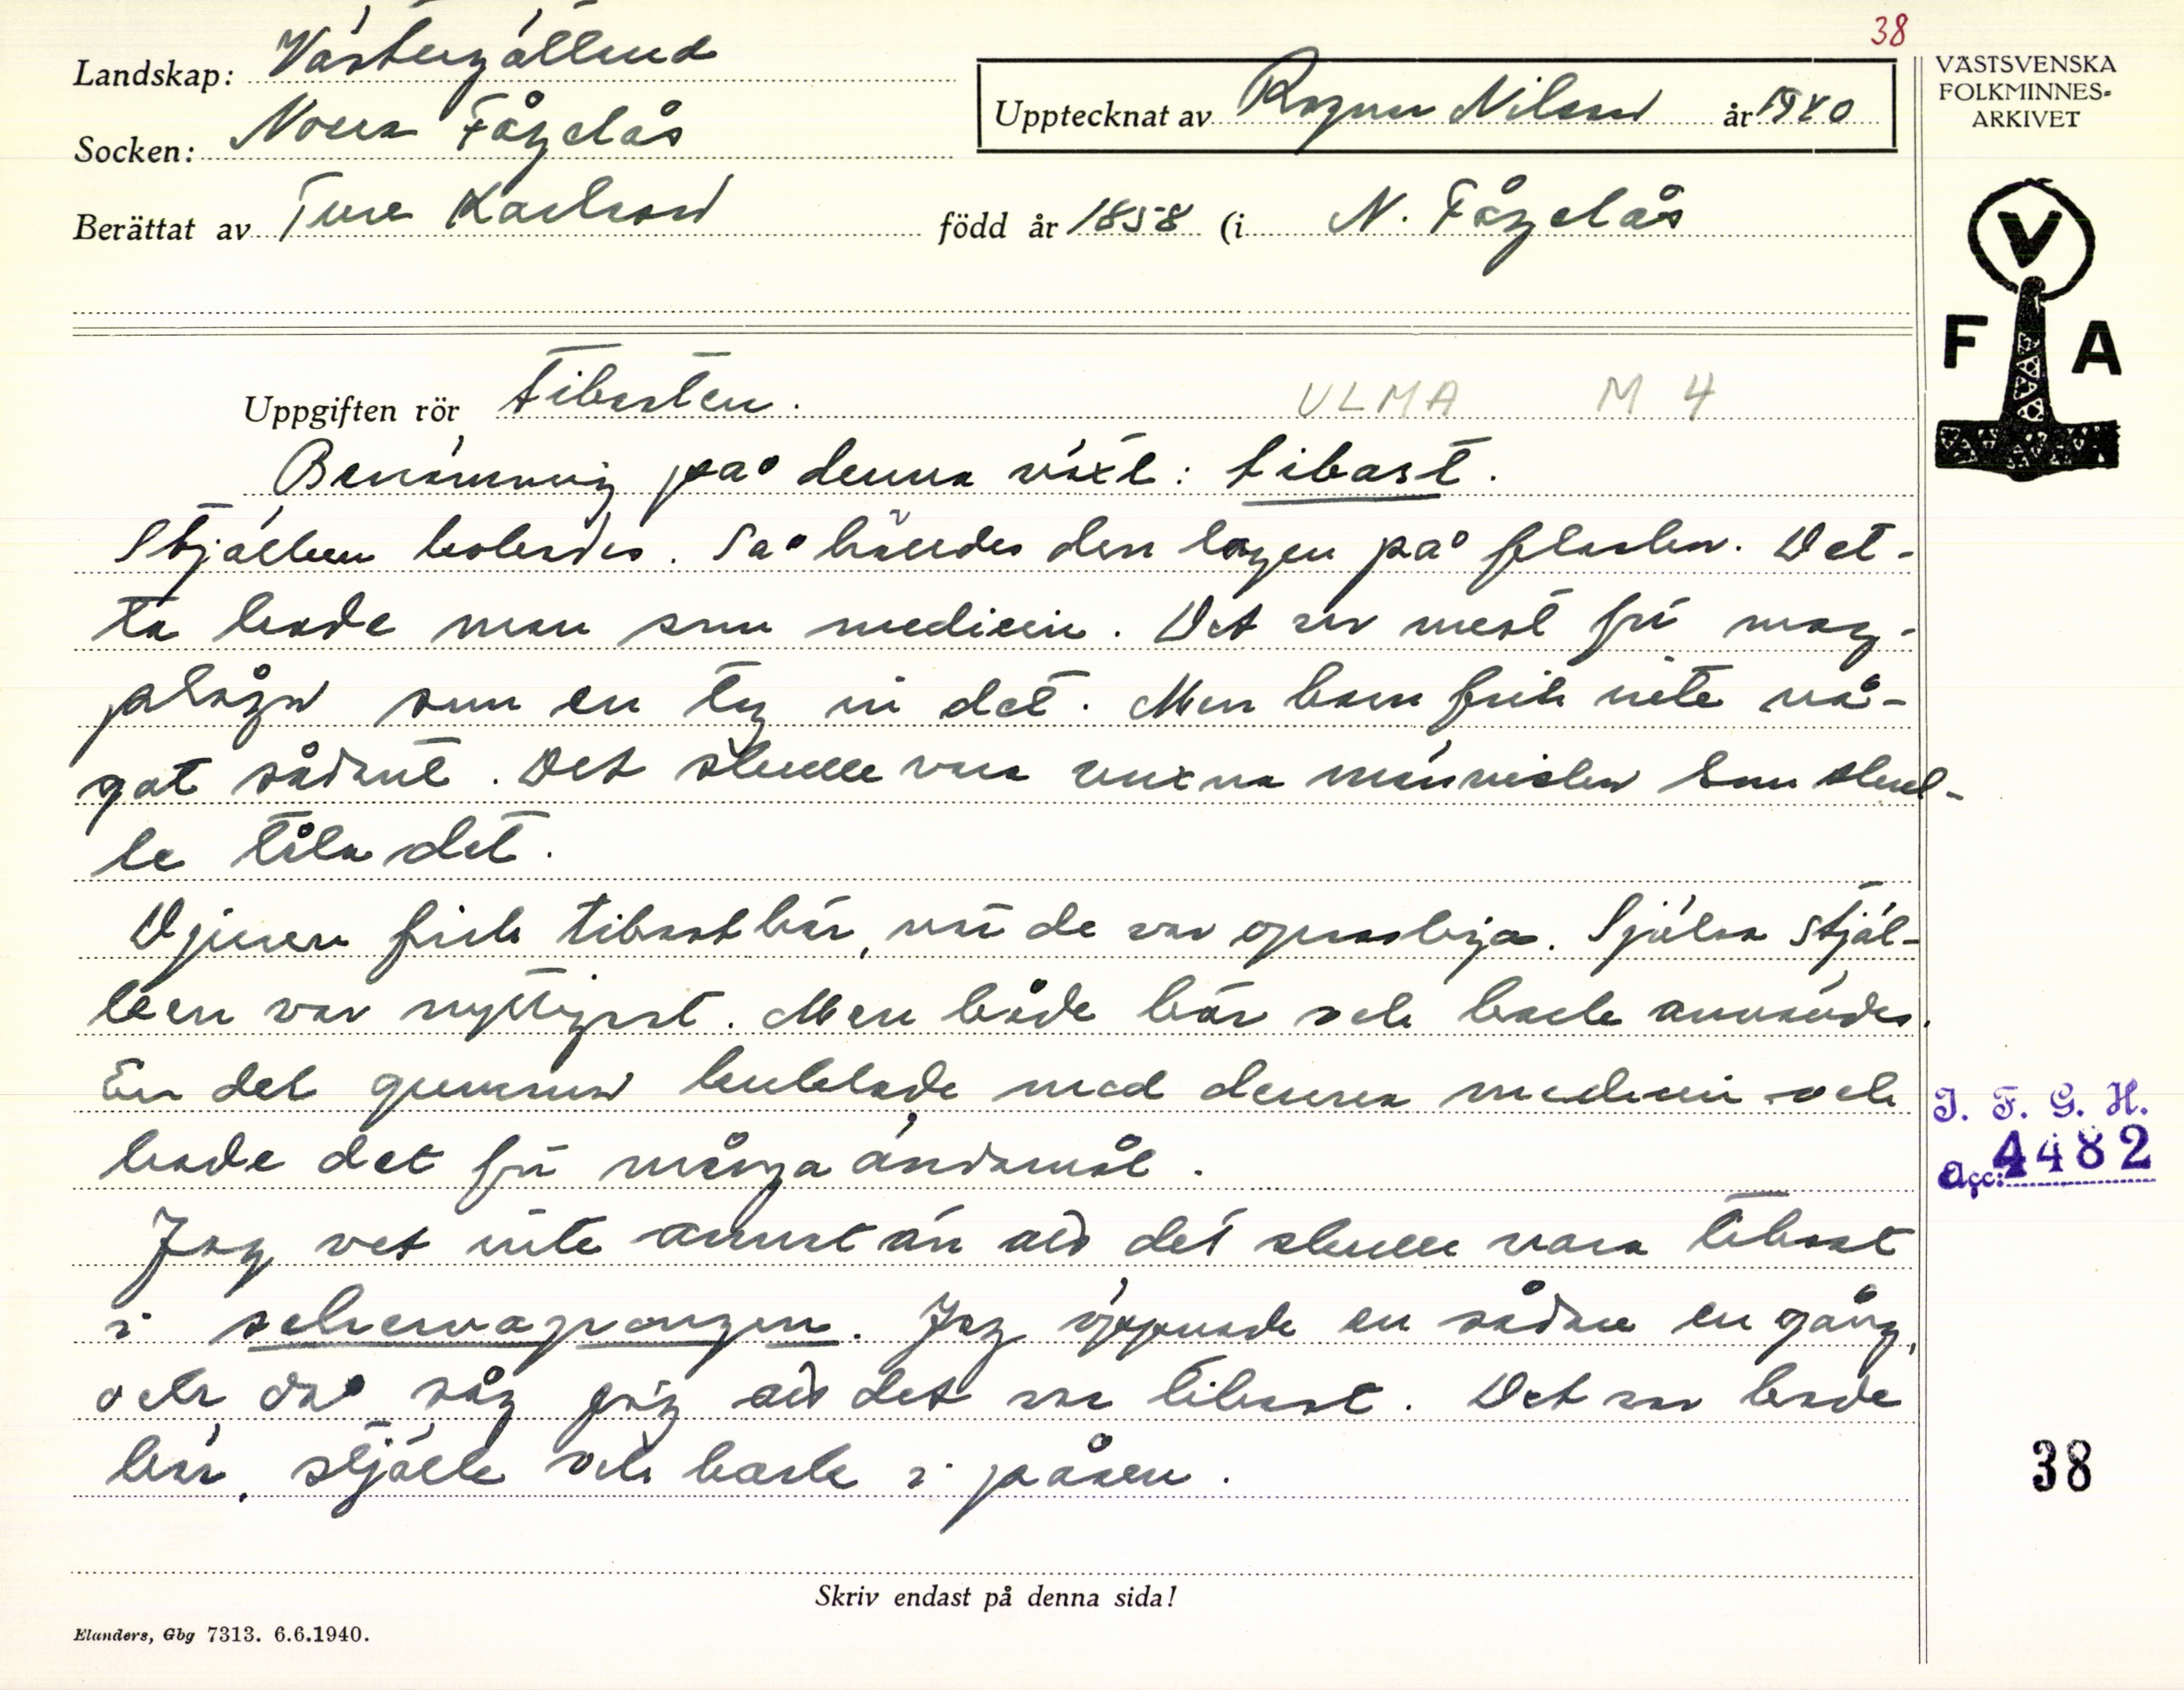 38
Landskap: Västergötland
Socken: Norra Fågelås
Upptecknat av Ragnar Nilsson år 1940
VÄSTSVENSKA
FOLKMINNES-
ARKIVET
Berättat av Ture Karlsson född år 1858 (i N. Fågelås
V
F A
Uppgiften rör tibasten. ULMA M 4
Benämning på denna växt: tibast.
Stjälken kokades. Så hälldes den lagen på flaskor. Det-
ta hade man som medicin. Det var mest för mag-
plågor som en tog in det. Men barn fick inte nå-
got sådant. Det skulle vara vuxna människor som skul-
le tåla det.
Djuren fick tibastbär, när de var opassliga. Själva stjäl-
ken var nyttigast. Men både bär och bark användes.
En del gummor kucklade med denna medicin och
hade det för många ändamål.
Jag vet inte annat än att det skulle vara tibast
i skrevapongen. Jag öppnade en sådan en gång,
och då såg jag att det var tibast. Det var både
bär, stjälk och bark i påsen.
J. F. G. H.
Acc: 4482
38
Skriv endast på denna sida!
Elanders, Gbg 7313. 6.6.1940.